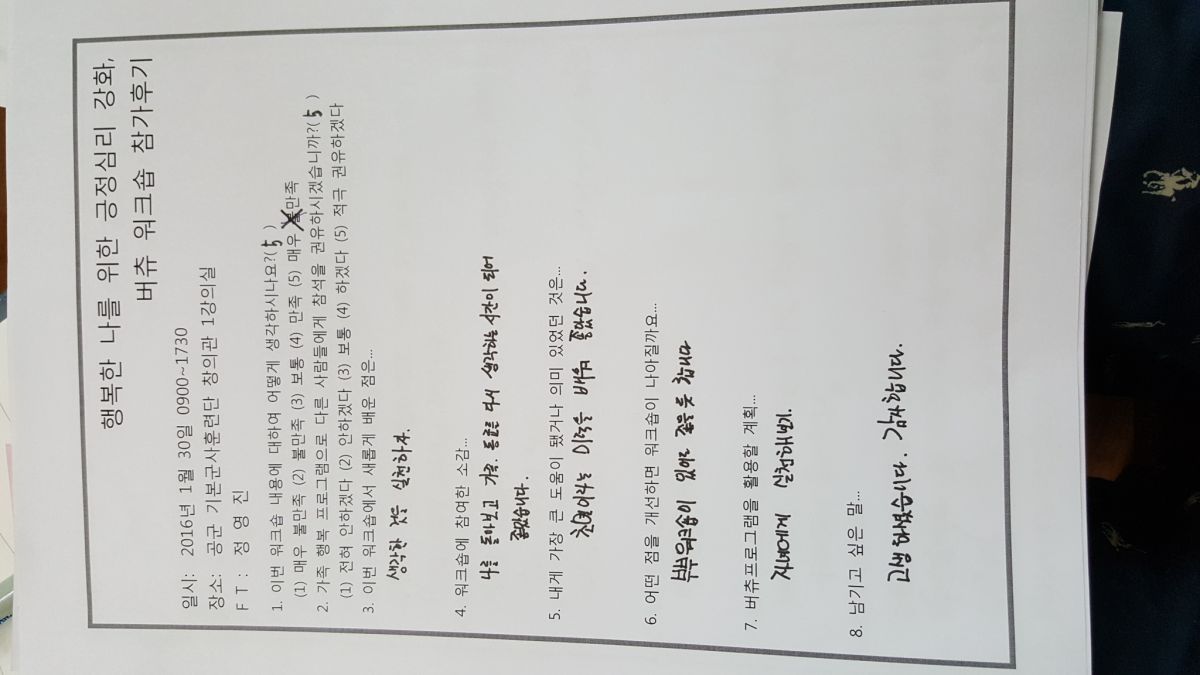 행복한 나를 위한 긍정심리 강화,
버츄 워크숍 참가후기
일시: 2016년 1월 30일 0900~1730
장소: 공군 기본군사훈련단 창의관 1강의실
F T : 정 영 진
1. 이번 워크숍 내용에 대하여 어떻게 생각하시나요?( 5 )
(1) 매우 불만족 (2) 불만족 (3) 보통 (4) 만족 (5) 매우 불만족
2. 가족 행복 프로그램으로 다른 사람들에게 참석을 권유하시겠습니까?( 5 )
(1) 전혀 안하겠다 (2) 안하겠다 (3) 보통 (4) 하겠다 (5) 적극 권유하겠다
3. 이번 워크숍에서 새롭게 배운 점은...
생각한 것을 실천하자.
4. 워크숍에 참여한 소감...
나를 돌아보고 가족, 동료를 다시 생각하는 시간이 되어
좋았습니다.
5. 내게 가장 큰 도움이 됐거나 의미 있었던 것은...
친절이라는 미덕을 배워 좋았습니다.
6. 어떤 점을 개선하면 워크숍이 나아질까요...
부부워크숍이 있어도 좋을듯 합니다
7. 버츄프로그램을 활용할 계획...
자녀에게 실천해보기.
8. 남기고 싶은 말...
고생하셨습니다. 감사합니다.